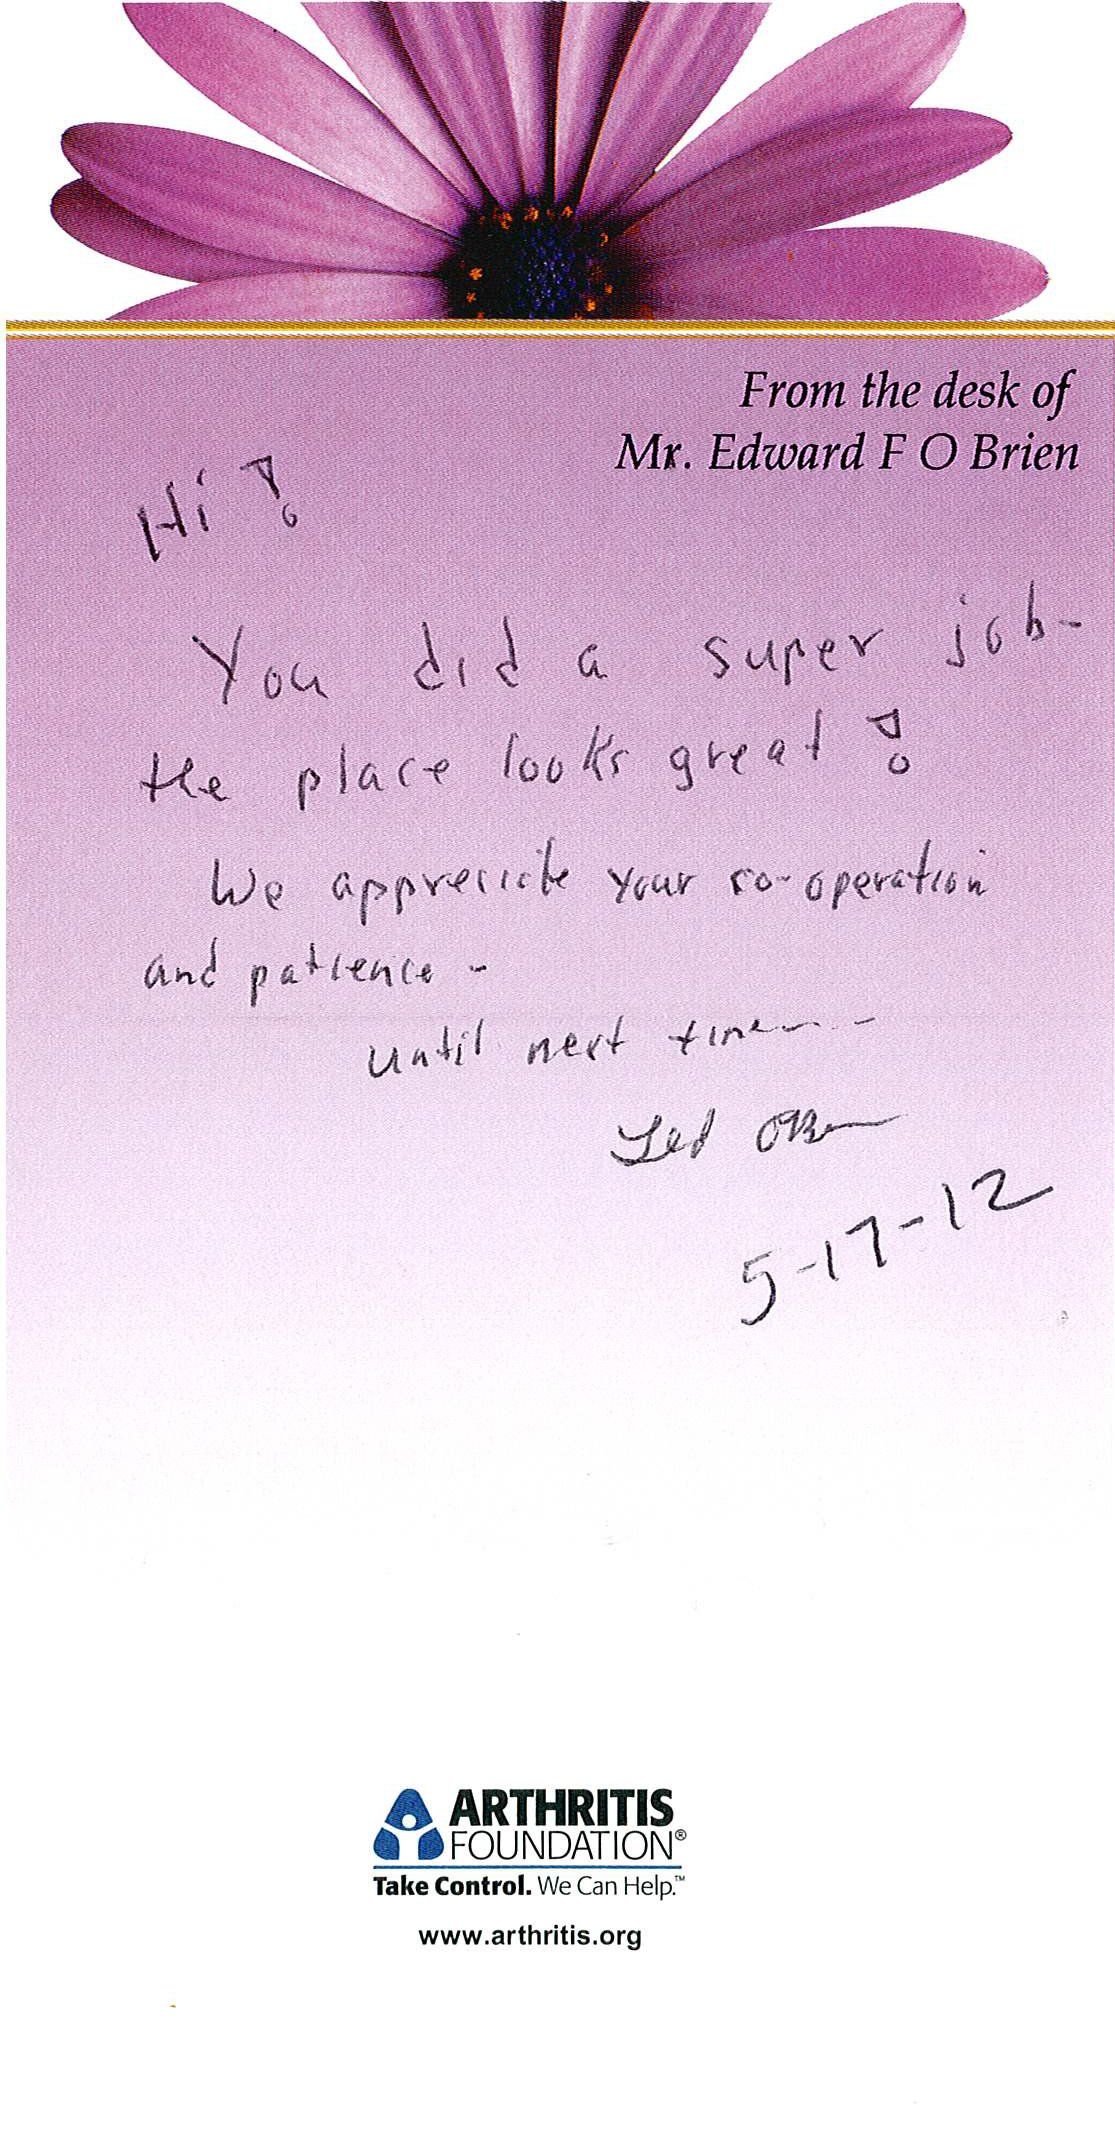 From the desk of
Mr. Edward F O Brien
Hi!
You did a super job-
the place looks great!
We appreciate your co-operation
and patience -
until next time---
Ted OBrien
5-17-12
ARTHRITIS
FOUNDATION®
Take Control. We Can Help.™
www.arthritis.org